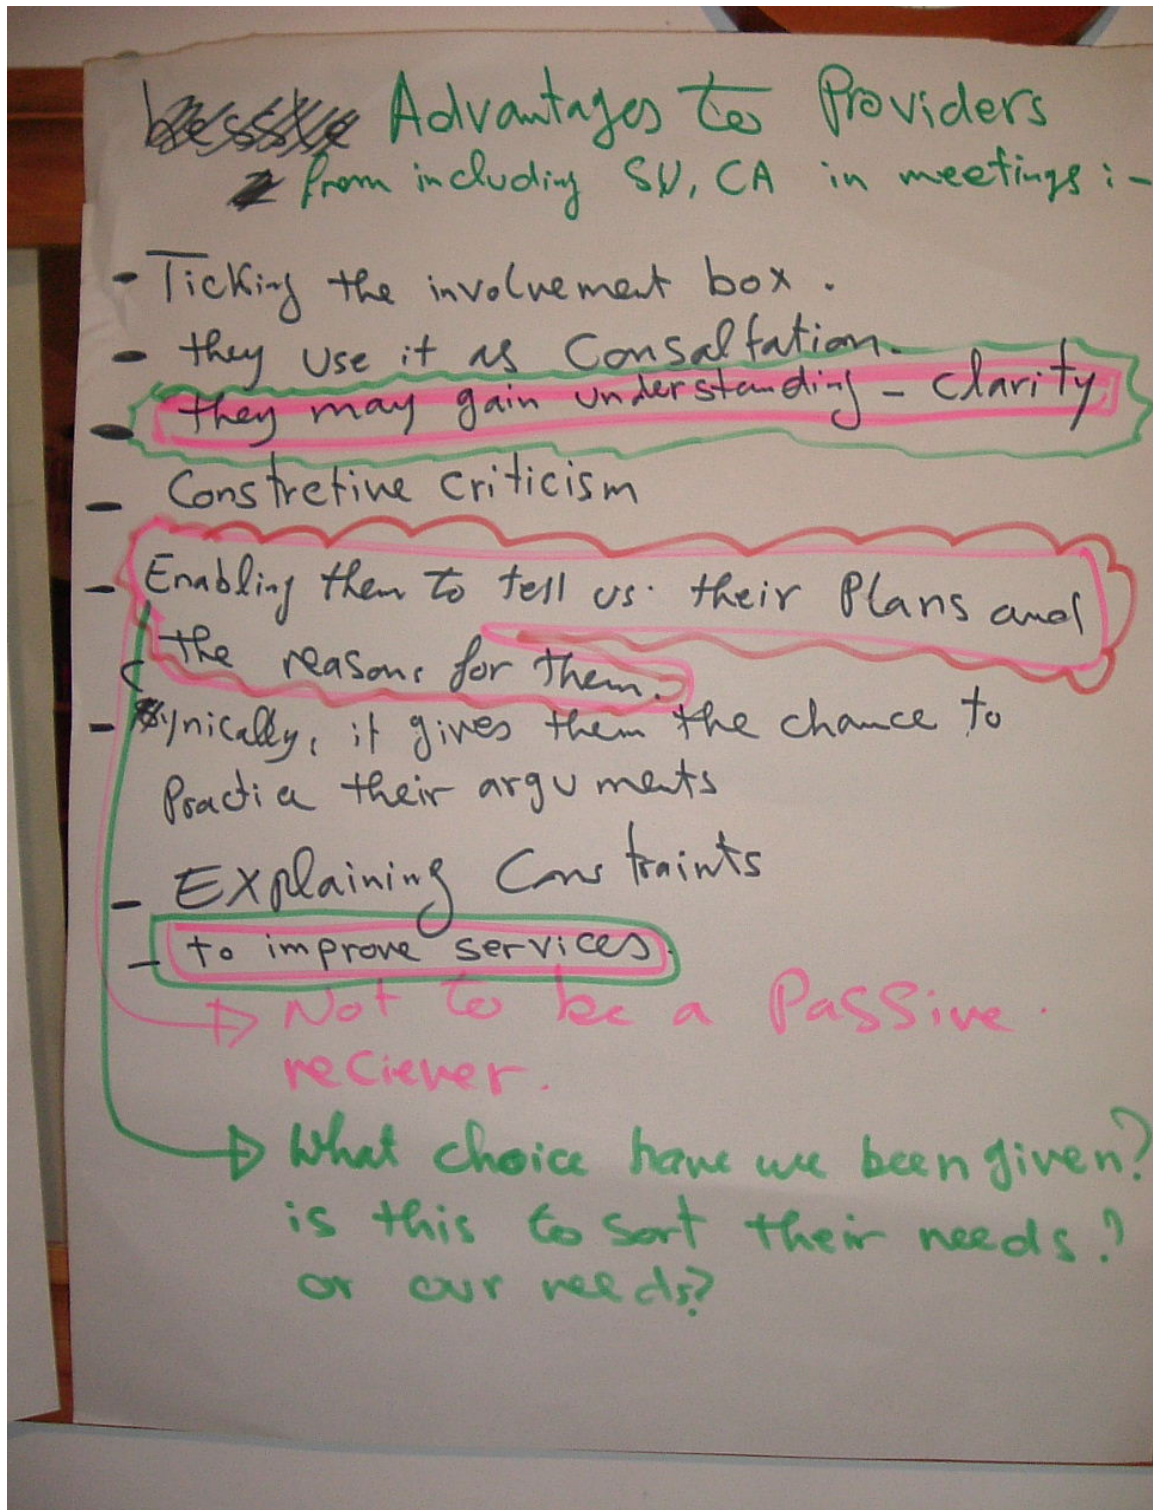 Advantages to Providers
from including SU, CA in meetings :-
- Ticking the involvement box.
- they use it as Consaltation.
- they may gain understanding - clarity
- Constretive criticism
- Enabling them to tell us their Plans and
the reasons for them.
- Cynically, it gives them the chance to
Practice their arguments
- Explaining Constraints
- to improve services.
Not to be a Passive
reciever.
What choice have we been given?
is this to sort their needs?
or our needs?